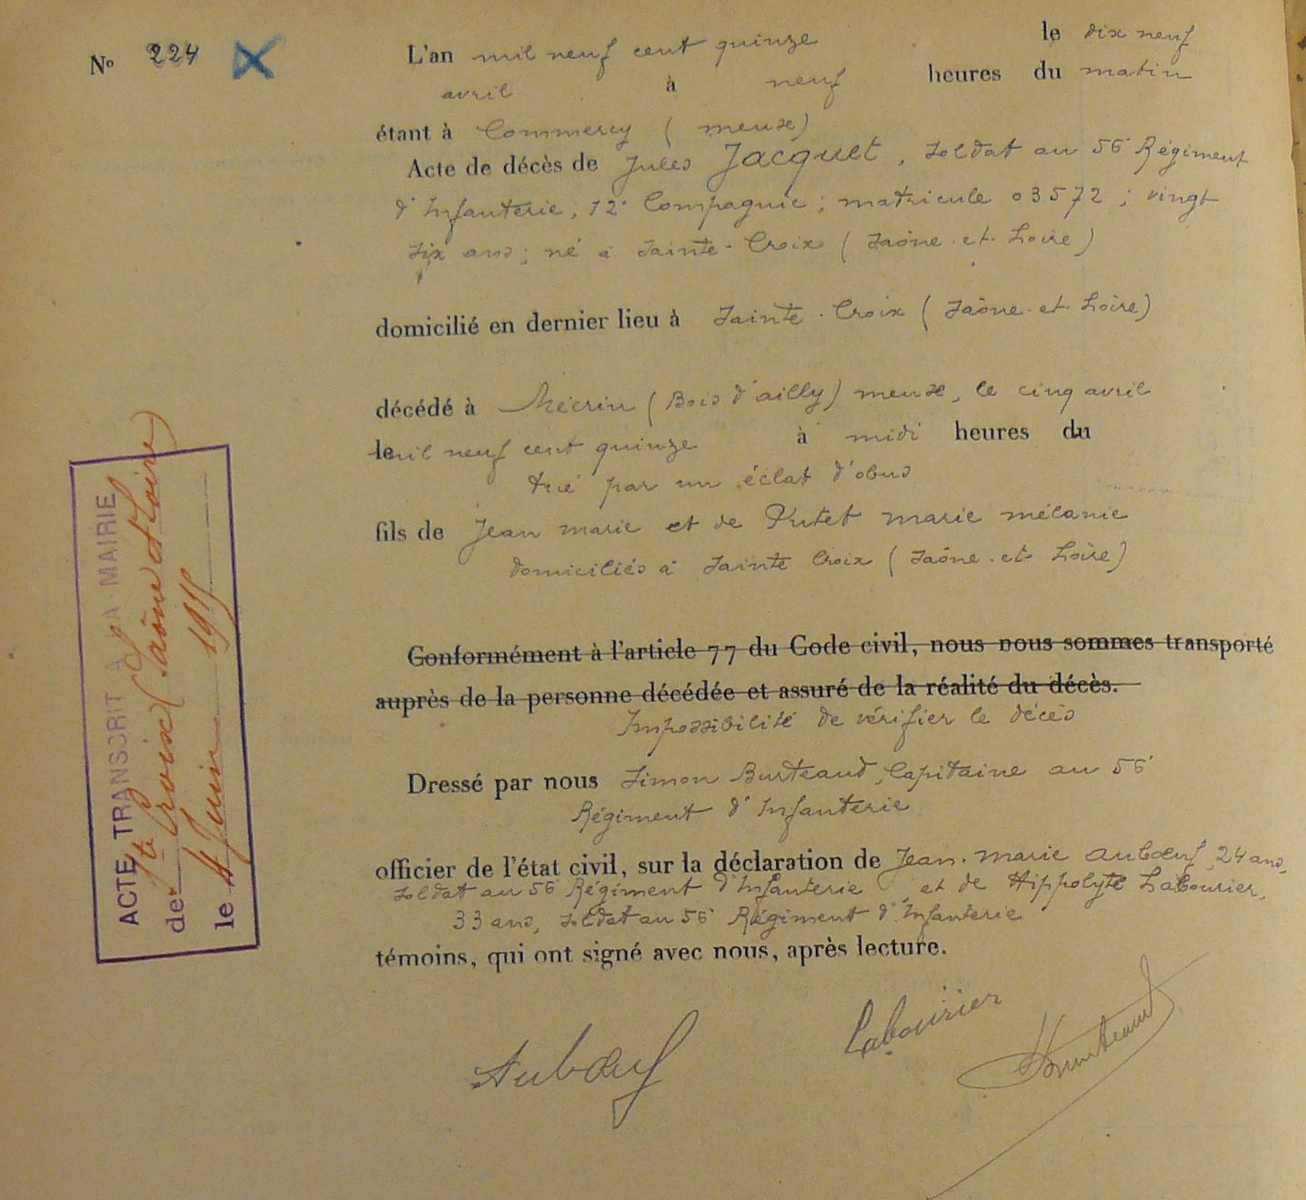 N° 224
L'an mil neuf cent quinze le dix neuf
avril à neuf heures du matin
étant à Commercy (meuse)
Acte de décès de Jules Jacquet, soldat au 56e Régiment
d'Infanterie, 12e Compagnie ; matricule 03572 ; vingt
six ans ; né à Sainte-Croix (Saône-et-Loire)
domicilié en dernier lieu à Sainte-Croix (Saône-et-Loire)
décédé à Mécrin (Bois d'ailly) meuse, le cinq avril
le mil neuf cent quinze à midi heures du
tué par un éclat d'obus
fils de Jean marie et de Putet marie mélanie
domiciliés à Sainte Croix (Saône-et-Loire)
Conformément à l'article 77 du Code civil, nous nous sommes transporté
auprès de la personne décédée et assuré de la réalité du décès.
Impossibilité de vérifier le décès
Dressé par nous Simon Burteaud, Capitaine au 56e
Régiment d'Infanterie
officier de l'état civil, sur la déclaration de Jean-marie auboeuf, 24 ans,
soldat au 56e Régiment d'Infanterie et de Hippolyte Labourier,
33 ans, soldat au 56e Régiment d'Infanterie
témoins, qui ont signé avec nous, après lecture.
Auboeuf
Labourier
Burteaud
ACTE TRANSCRIT A LA MAIRIE
de Ste Croix (Saône et Loire)
le 4 Juin 1915